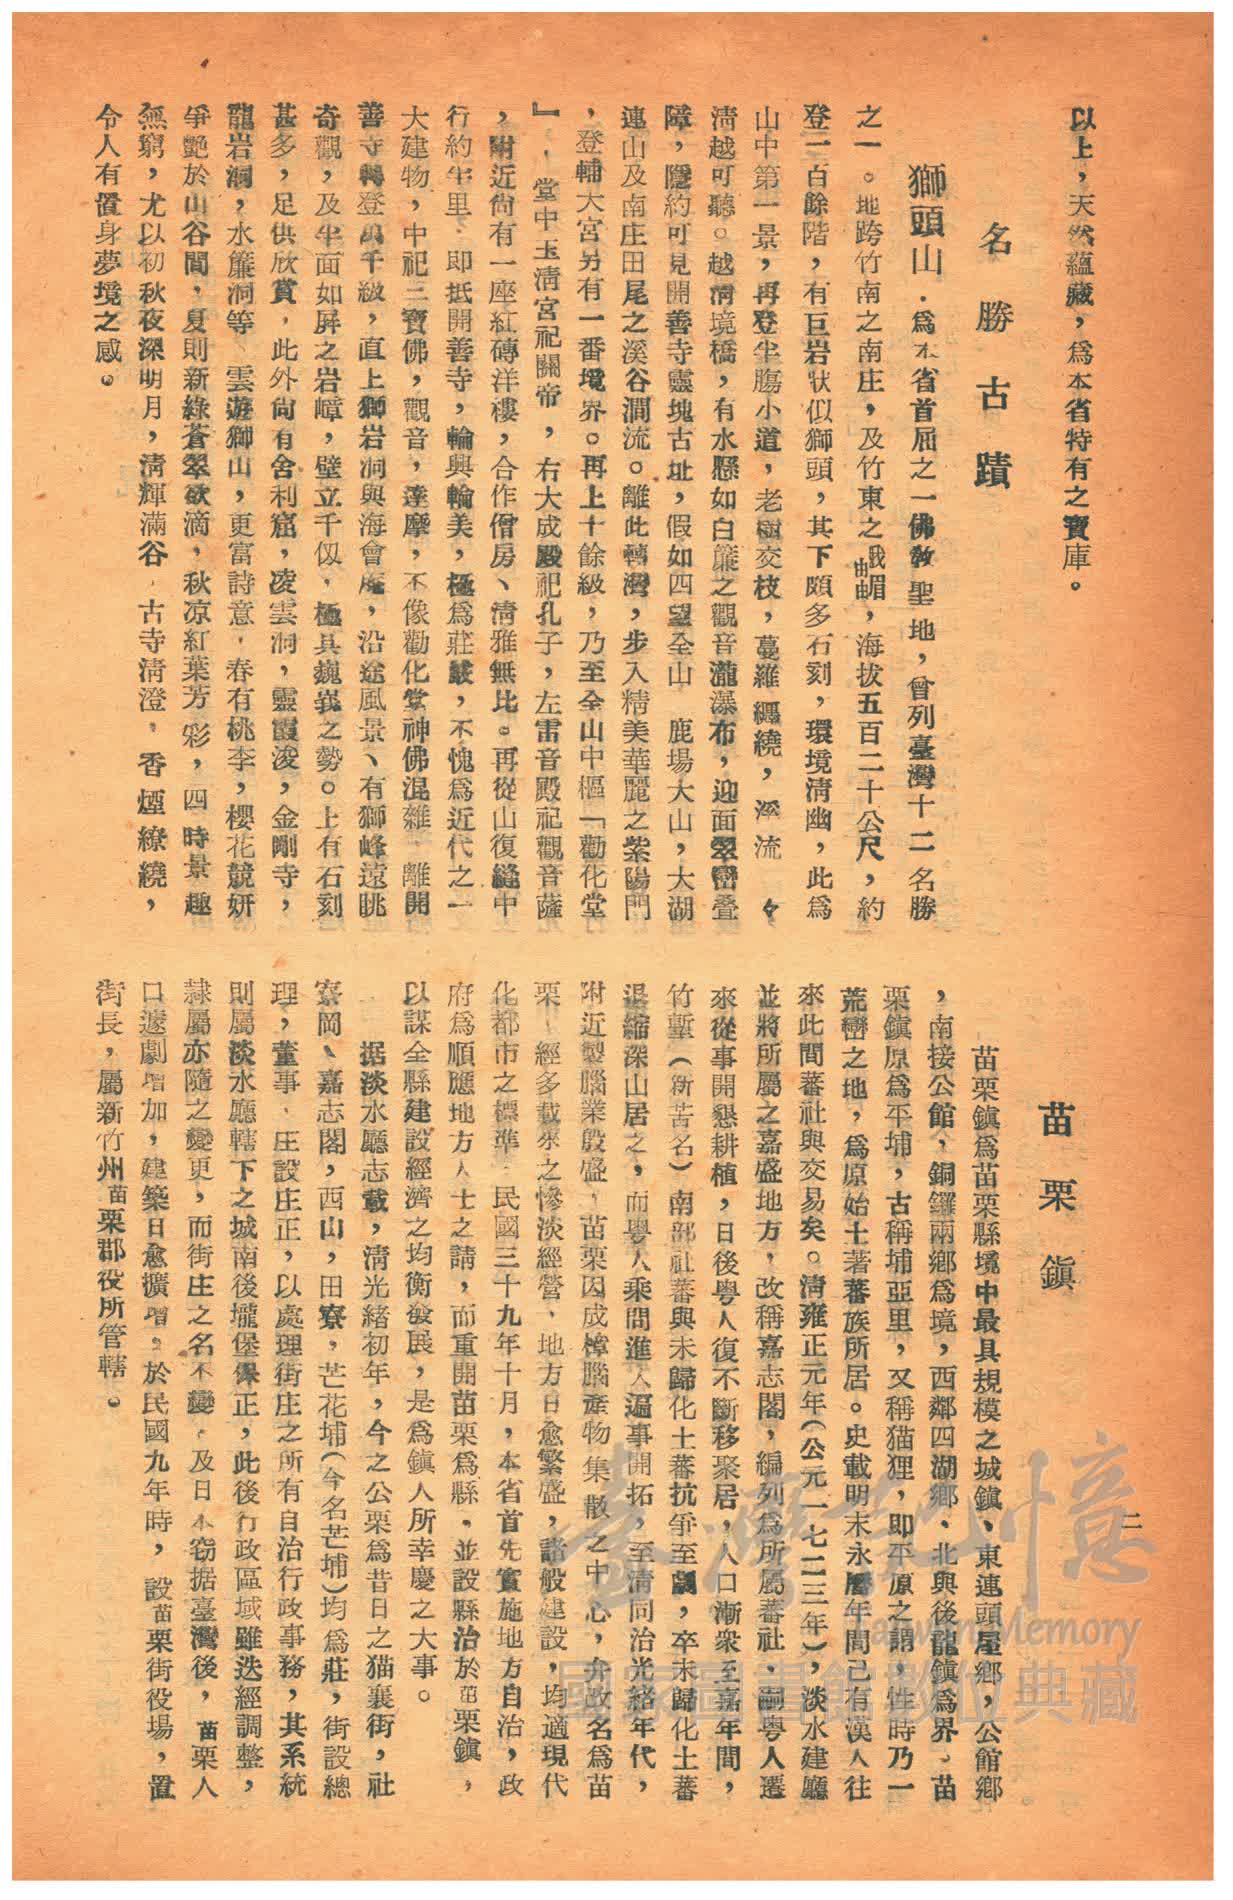 以上，天然蘊藏，為本省特有之寶庫。
名勝古蹟
獅頭山．為本省首屈之一佛教聖地，曾列臺灣十二名勝
之一。地跨竹南之南庄，及竹東之峨嵋，海拔五百二十公尺，約
登一百餘階，有巨岩狀似獅頭，其下頗多石刻，環境清幽，此為
山中第一景，再登羊膓小道，老樹交枝，蔓羅纒繞，溪流々
清越可聽。越清境橋，有水懸如白簾之觀音瀧瀑布，迎面翠巒叠
障，隱約可見開善寺靈塊古址，假如四望全山　鹿場大山，大湖
連山及南庄田尾之溪谷澗流。離此轉灣，步入精美華麗之紫陽門
，登輔大宮另有一番境界。再上十餘級，乃至全山中樞「勸化堂
』，堂中玉清宮祀關帝，右大成殿祀孔子，左雷音殿祀觀音薩
，附近尙有一座紅磚洋樓，合作僧房、清雅無比。再從山復縫中
行約半里，即抵開善寺，輪興輪美，極為莊嚴，不愧為近代之一
大建物，中祀三寶佛，觀音，達摩，不像勸化堂神佛混雜．離開
善寺轉登萬千級，直上獅岩洞與海會庵，沿途風景、有獅峰遠眺
奇觀，及半面如屏之岩嶂，壁立千仭，極具巍峩之勢。上有石刻
甚多，足供欣賞，此外尙有舍利窟，凌雲洞，靈霞浚，金剛寺，
龍岩洞，水簾洞等、雲遊獅山，更富詩意，春有桃李，櫻花競妍
爭艷於山谷間，夏則新綠蒼翠欲滴，秋凉紅葉芳彩，四時景趣
無窮，尤以初秋夜深明月，清輝滿谷，古寺清澄，香煙繚繞，
令人有置身夢境之感。
二
苗栗鎮
苗栗鎮為苗栗縣境中最具規模之城鎮、東連頭屋鄉，公館鄉
，南接公館，銅鑼兩鄉為境，西鄰四湖鄉、北與後龍鎮為界，苗
栗鎮原為平埔，古稱埔亞里，又稱猫狸，即平原之謂，性時乃一
荒巒之地，為原始土著蕃族所居。史載明末永曆年間己有漢人往
來此間蕃社與交易矣。清雍正元年（公元一七二三年），淡水建廳
並將所屬之嘉盛地方，改稱嘉志閣，編列為所屬蕃社，嗣粵人遷
來從事開懇耕植，日後粵人復不斷移聚居，人口漸衆至嘉年間，
竹塹（新苦名）南部社蕃與未歸化土蕃抗爭至劇，卒未歸化土蕃
退縮深山居之，而粵人乘間進入逼事開拓，至清同治光緒年代，
附近製腦業殷盛，苗栗因成樟腦產物集散之中心，弁改名為苗
栗，經多載來之慘淡經營，地方日愈繁盛，諸般建設，均適現代
化都市之標準，民國三十九年十月，本省首先實施地方自治，政
府為順應地方人士之請，而重開苗栗為縣，並設縣治於苗栗鎮，
以謀全縣建設經濟之均衡發展，是為鎮人所幸慶之大事。
据淡水廳志載，清光緒初年，今之公栗為昔日之猫裏街，社
寮岡、嘉志閣，西山，田寮，芒花埔（今名芒埔）均為莊，街設總
理，董事，庄設庄正，以處理街庄之所有自治行政事務，其系統
則屬淡水廳轄下之城南後壠堡保正，此後行政區域雖迭經調整，
隸屬亦隨之變更，而街庄之名不變，及日本窃据臺灣後，苗栗人
口遽劇增加，建築日愈擴增。於民國九年時，設苗栗街役場，置
街長，屬新竹州苗栗郡役所管轄。
臺灣記憶
Taiwan Memory
國家圖書館數位典藏